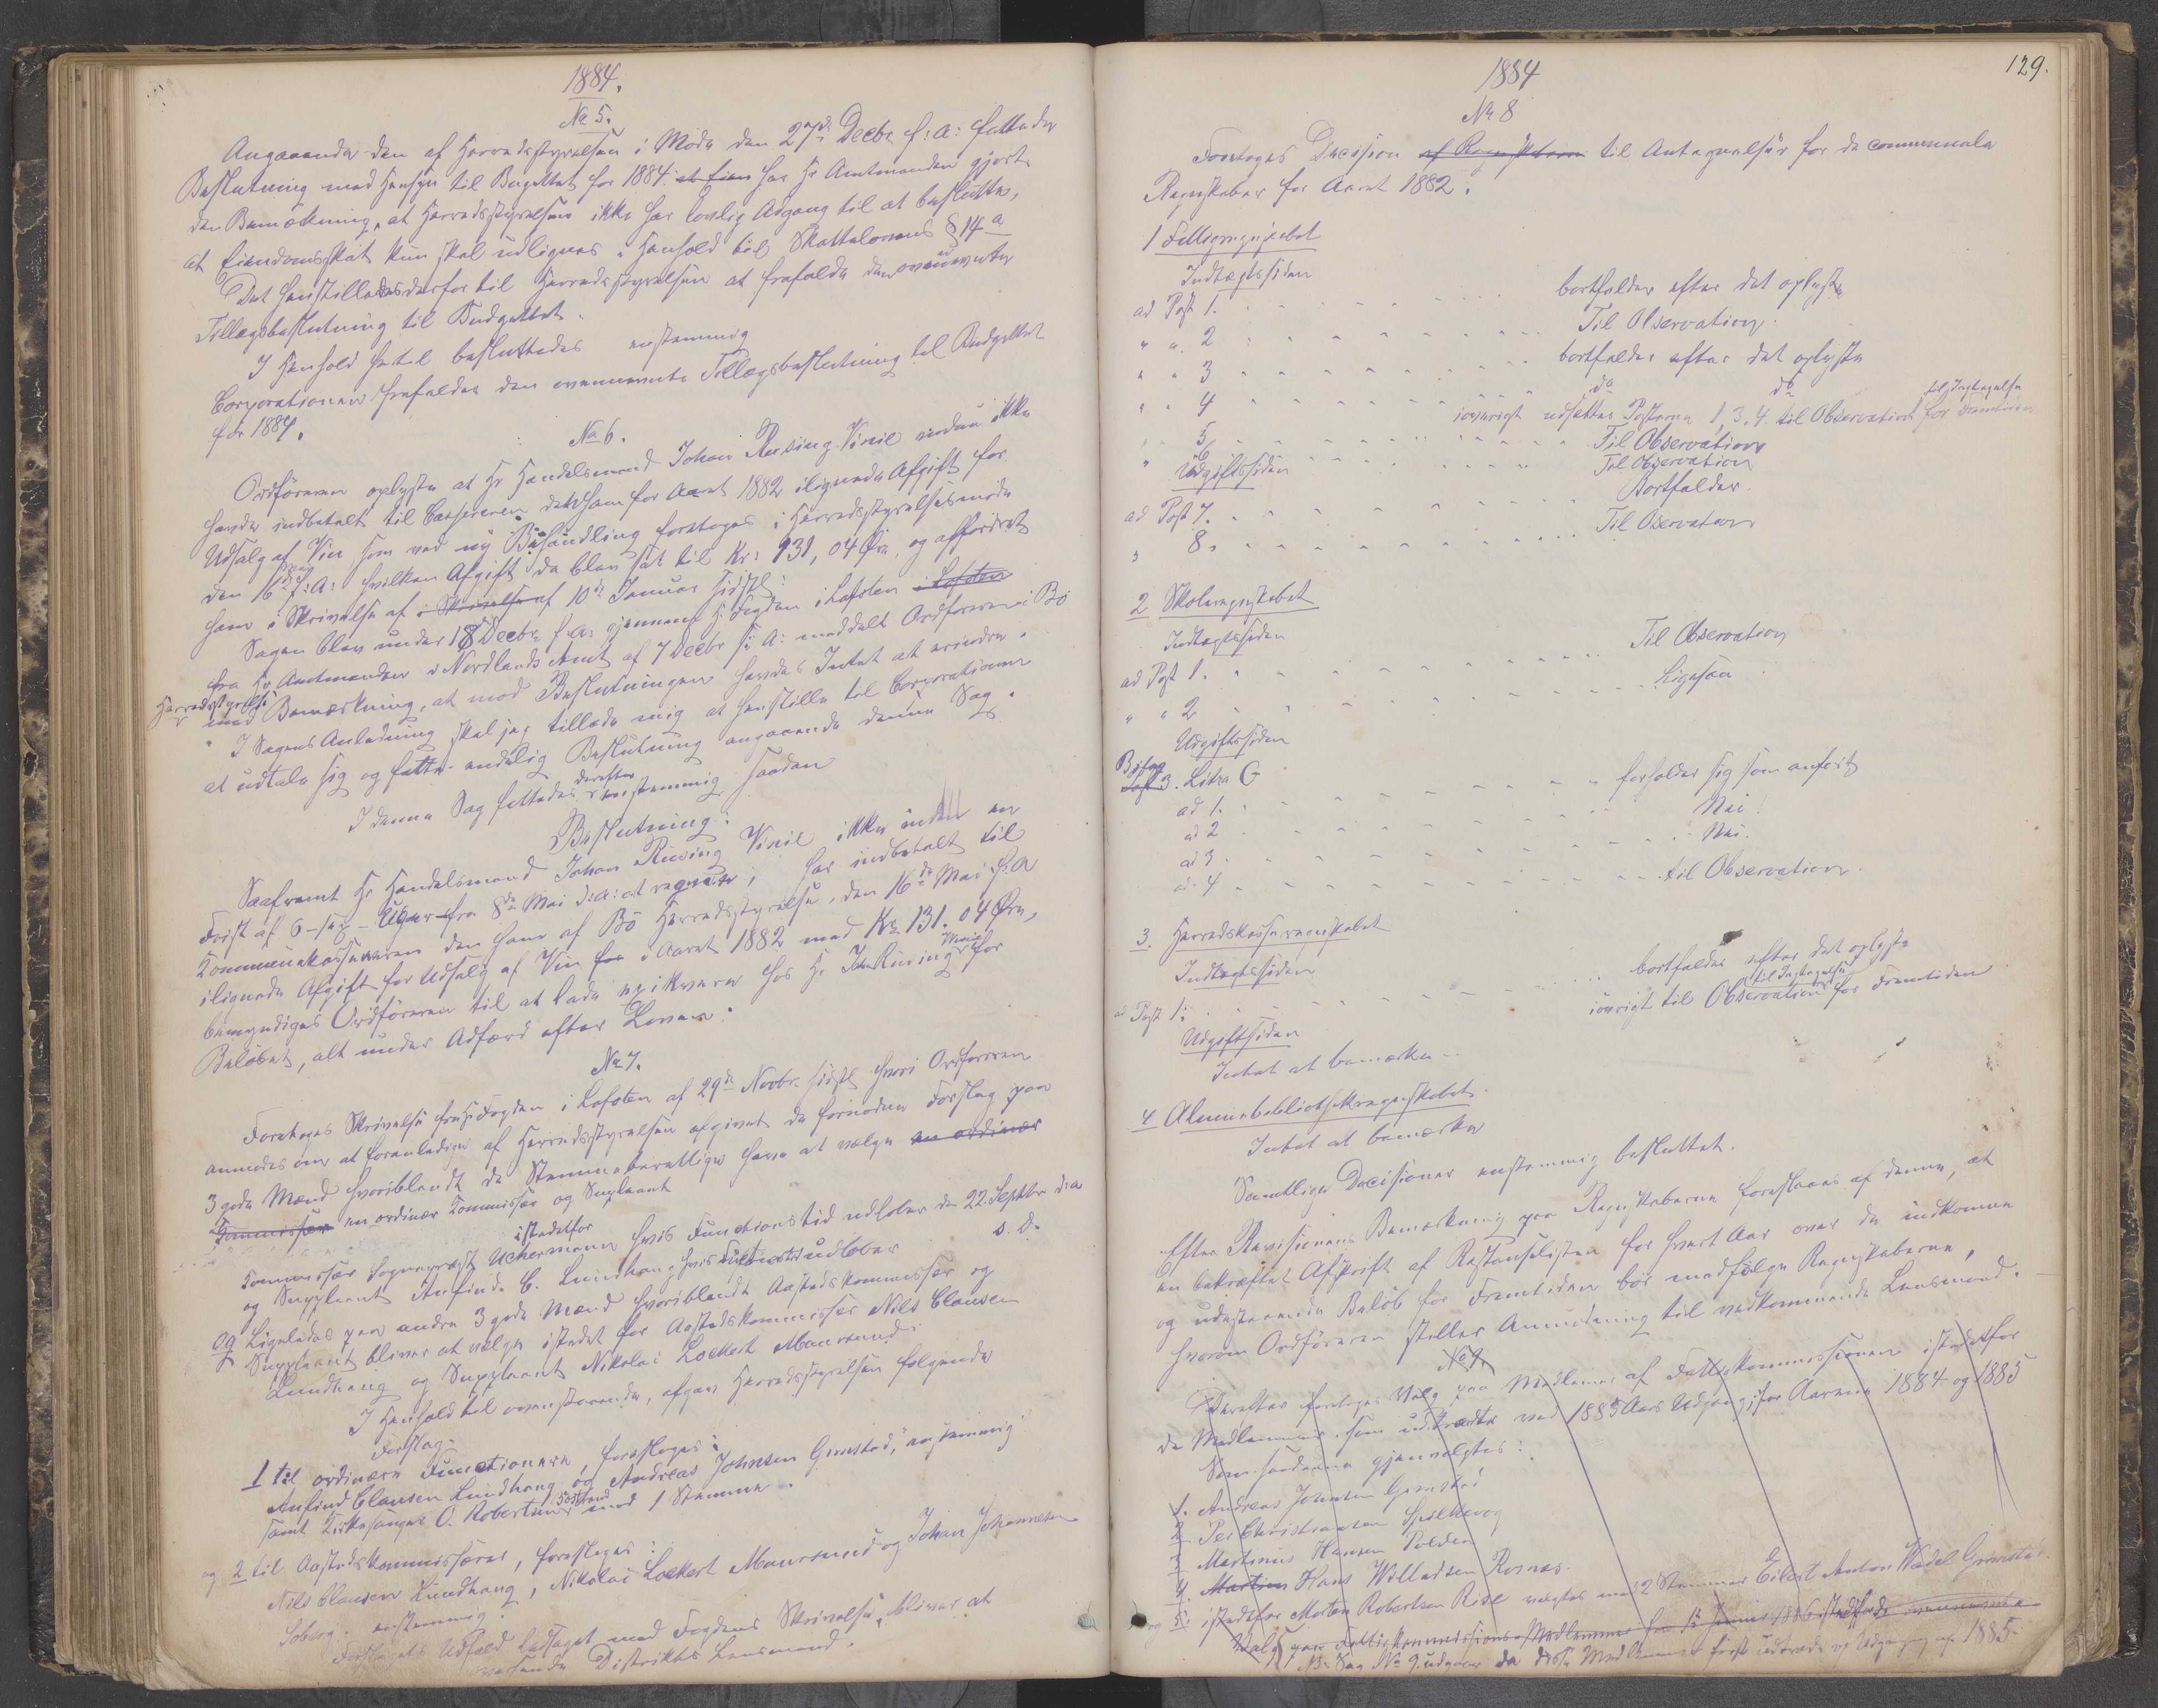 1884.
No 5.
Angaaende den af Herredsstyrelsen i Møde den 27de Decbr f: A: fattede
Beslutning med Hensyn til Bugettet for 1884. har Hr Amtmanden gjort
den Bemærkning, at Herredsstyrelsen ikke har lovlig Adgang til at beslutte,
at Eiendomsskat kun skal udlignes i Henhold til Skattelovens § 14 a
Det henstilledes derfor til Herredsstyrelsen at frafalde den ovennevnte
Tillægsbeslutning til Budgettet.
I Henhold hertil besluttedes enstemmig
Corporationen frafalder den ovennevnte Tillægsbeslutning til Budgettet
for 1884.
No 6.
Ordføreren oplyste at Hr Handelsmand Johan Rusing Vinie endnu ikke
havde indbetalt til Cassereren den ham for Aaret 1882 ilignede Afgift for
Udsalg af Vin som ved ny Behandling foretoges i Herredsstyrelsesmøde
den 16de f: A: hvilken Afgift da blev sat til Kr: 131,04 Øre, og affordret
ham i Skrivelse af i Skrivelse af 10de Januar sidstl:
Sagen blev under 18 Decbr f: A: gjennem Hr Fogden i Lofoten i Lofoten
fra Hr Amtmanden i Nordlands Amt af 7 Decbr s: A: meddelt Ordføreren i Bø
Herredsstyrelse
med Bemærkning, at mod Beslutningen havdes Intet at erindre.
I Sagens Anledning skal jeg tillade mig at henstille til Corporationen
at udtale sig og fatte endelig Beslutning angaaende denne Sag.
I denne Sag fattedes derefter enstemmig saadan
Beslutning:
Saafremt Hr Handelsmand Johan Rusing Vinie ikke inden en
Frist af 6 - sex - Uger fra 8de Mai d: A: at regne, har indbetalt til
Kommunekassereren den ham af Bø Herredsstyrelse, den 16de Mai f. A
ilignede Afgift for Udsalg af Vin for i Aaret 1882 med Kr 131.04 Øre,
bemyndiges Ordføreren til at lade exikvere hos Hr Joh Rusing Winie for
Beløbet, alt under Adfærd efter Loven.
No 7.
Foretoges Skrivelse fra Hr Fogden i Lofoten af 29de Novbr sidstl hvori Ordføreren
anmodes om at foranledige af Herredsstyrelsen afgivet de fornødne Forslag paa
3 gode Mænd hvoriblandt de Stemmeberettigede have at vælge en ordinær
Kommissær en ordinær Kommissær og Supleant
istedetfor
Kommissær Sogneprest Uchermann hvis Functionstid udløber den 22 Septbr d: a
og Suppleant Anfind C. Lundhaug hvis Functionstid udløber s. d.
og Ligeledes paa andre 3 gode Mænd hvoriblandt Aastedskommissær og
Suppleant bliver at vælge istedet for Aastedskommissær Nils Clausen
Lundhaug og Suppleant Nikolai Lockert Maursund.
I Henhold til ovenstaaende, afgav Herredsstyrelsen følgende
Forslag.
1 til ordinære Functionærer, foresloges:
Anfind Clausen Lundhaug og Andreas Johnsen Grimstad, enstemmig
samt Kirkesanger O. Robertsen med 1 Stemme.
og 2 til Aastedskommissærer, foresloges:
Nils Clausen Lundhaug, Nikolai Lockert Maursund og Johan Johannesen
Soberg. enstemmig.
Forslagets Udfald ledsaget med Fogdens Skrivelse, bliver at
Distriktets Lensmand.
1884
129.
No 8
Foretoges Decision af Regnskabern til Antegnelser for de communale
Regnskaber for Aaret 1882.
1 Fattigregnskabet
Indtægtssiden
ad Post 1. bortfalder efter det oplyste
" " 2 Til Observation.
" " 3 bortfalder efter det oplyste
" " 4 do do
iøvrigt udsettes Posterne 1, 3, 4 til Observation til Iagtagelse for Fremtiden
" 5 Til Observation
" 6 Til Observation
Udgiftssiden
ad Post 7. Bortfalder.
" 8. Til Oservation
2 Skoleregnskabet
Indtægtssiden
ad Post 1. Til Observation
" " 2 Ligesaa
Udgiftssiden
Bilag
Post 3. Litra G
ad 1. forholder sig som anført
ad 2 Nei!
ad 3. Nei.
ad 4 til Observation.
3. Herredskasseregnskabet
Indtægtssiden
ad Post 1: bortfalder efter det oplyste
iøvrigt til Observation til Iagtagelse for Fremtiden
Udgiftsiden
Intet at bemærke
4 Almuebibliothekregnskabet.
Intet at bemærke
Samtlige Decisioner enstemmig besluttet.
Efter Revisionens Bemærkning paa Regnskaberne foreslaaes af denne, at
en bekræftet Afskrift af Restanselisten for hvert Aar over de indkomne
og udestaaende Beløb for Fremtiden bør medfølge Regnskaberne,
hvorom Ordføreren stiller Anmodning til vedkommende Lensmand.
No 9.
Derefter foretoges Valg paa Medlemmer af Fattigkommissionen istedetfor
de Medlemmer som udtrædte ved 1883 Aars Udgang, for Aarene 1884 og 1885
Som saadanne gjenvalgtes:
1. Andreas Johnsen Grimstad
2. Per Christiansen Spilkevog
3 Martinus Hansen Polden
4. Martin Hans Willadsen Rosnæs.
og 5. istedfor Morten Robertsen Rise valgtes med 2 Stemmer Eilert Anton Wadel Grimstad.
Valg paa Fattigkommissions-Medlemmer fra 1ste Januar 1886 istedetfor de ovennævnte
NB. Sag No 9 udgaar da disse Medlemmer først udtræde ved Udgangen af 1885.